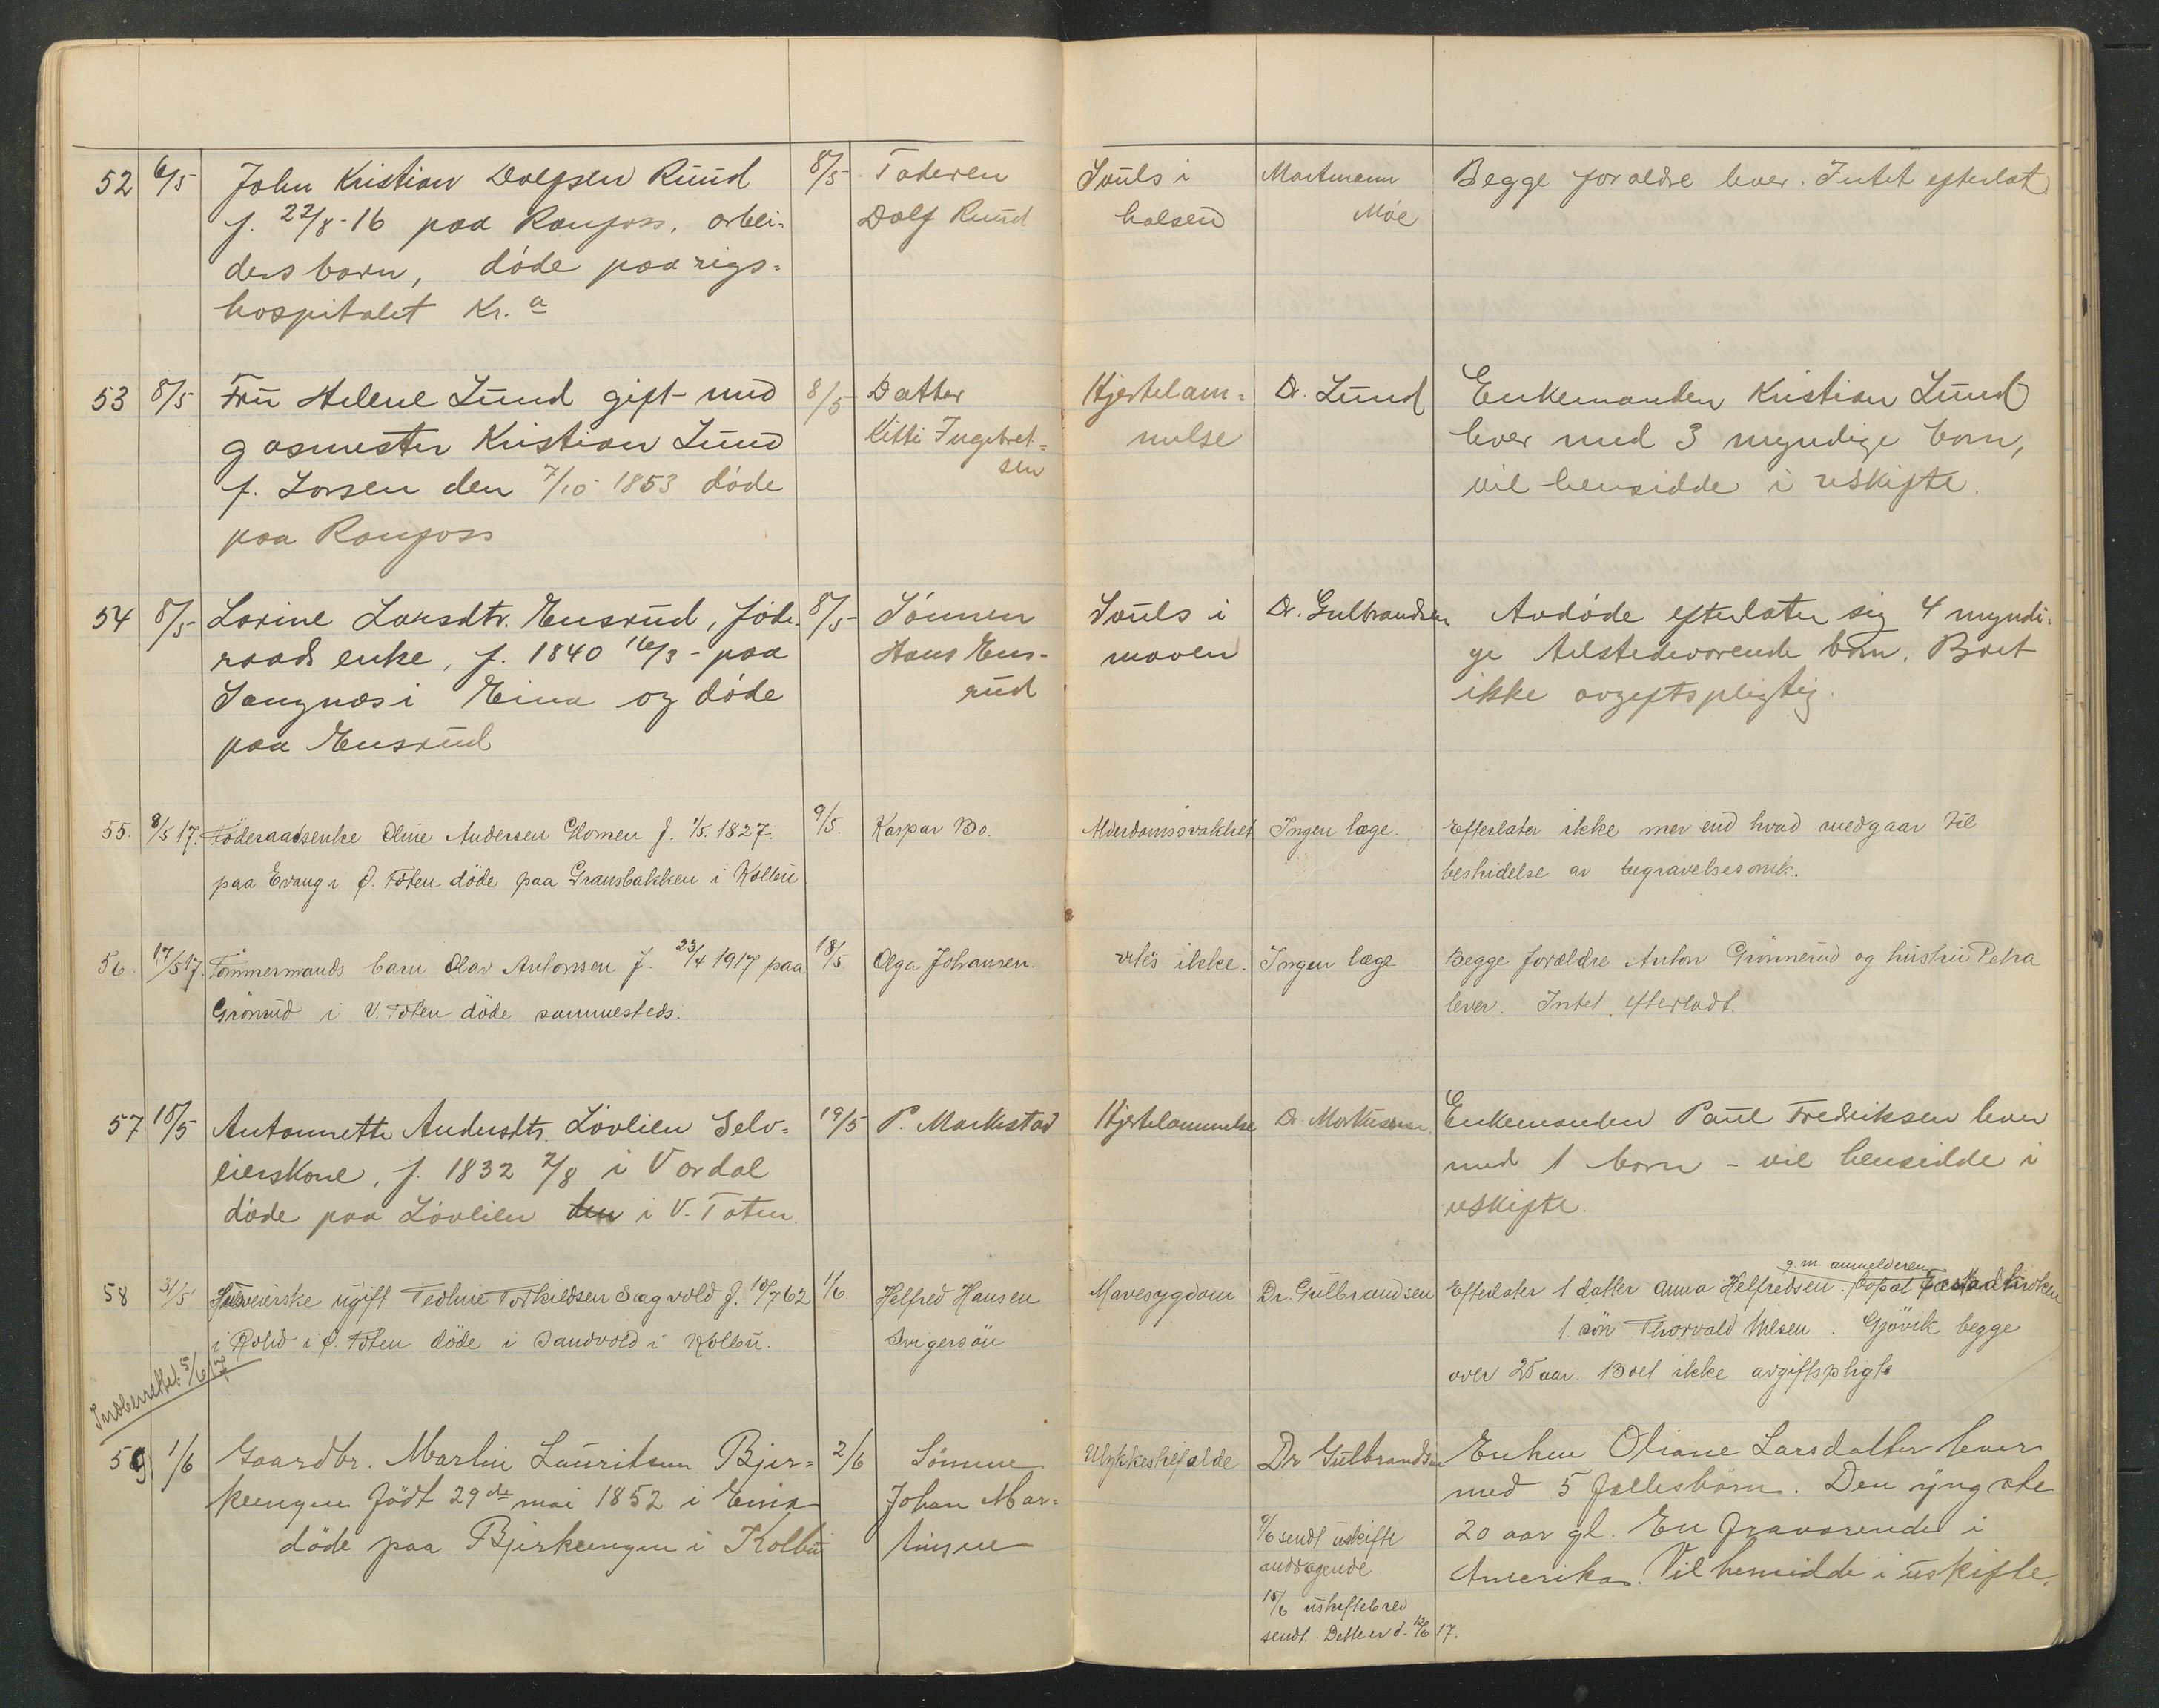 52 6/5 John Kristian Dolfsen Ruud 8/5 Faderen Sauls i Martmann Begge foraeldre lever. Intet efterlat
f. 22/8-16 paa Raufoss, arbei- Dolf Ruud halsen Móe
dersbarn, døde paa rigs-
hospitalet Kr.a
53 8/5 Fru Helene Lund gift med 8/5 Datter Hjertelam- Dr. Lund Enkemanden Kristian Lund
gasmester Kristian Lund Kitti Ingebret- melse lever med 3 myndige barn,
f. Larsen den 7/10 1853 døde sen vil hensidde i uskifte.
paa Raufoss
54 8/5 Lovine Larsdtr. Ensrud, føde- 8/5 Sønnen Sauls i Dr. Gulbrandsen Avdøde efterlater sig 4 myndi-
raads enke, f. 1840 16/3 - paa Hans Ens- maven ge tilstedevarende barn. Boet
Sangnæs i Eina og døde rud ikke avgiftspligtig.
paa Ensrud
55. 8/5 17. Føderaadsenke Oline Andersen Glomen f. 1/5. 1827. 9/5. Kaspar Bø. Alderdomssvakhet Ingen læge. Efterlater ikke mer end hvad medgaar til
paa Evang i Ø. Toten døde paa Gransbakken i Kolbu bestridelse av begravelsesomk.
56. 17/5 17. Tømmermands barn Olav Antonsen f. 23/4 1917 paa 18/5 Olga Johansen. vites ikke. Ingen læge Begge forældre Anton Grønnerud og hustru Petra
Grønrud i V. Toten døde sammesteds. lever. Intet efterladt.
57 18/5 Antonnette Andersdtr. Løvlien Selv- 19/5 P. Markestad Hjertelammelse Dr. Enkemanden Paul Fredriksen lever
eierskone, f. 1832 2/8 i Vardal med 1 barn - vil hensidde i
døde paa Løvlien i V. Toten. uskifte.
g. m. anmelderen
58 31/5 ugift Teoline Torkildsen Sagvold f. 10/7 62 1/6 Helfred Hansen Mavesygdom Dr. Gulbrandsen Efterlater 1 datter Anna Helfredsen. bopat
i i Ø. Toten døde i Sandvold i Kolbu. Svigersøn 1 søn Thorvald Nilsen. Gjøvik begge
over 25 aar. Boet ikke avgiftspligtig
Indberettet 5/6 17
59 1/6 Gaardbr. Martin Lauritsen Bjer- 2/6 Sønnen Ulykkestilfælde Dr Gulbrandsen Enken Oliane Larsdatter lever
keengen født 29de mai 1852 i Eina Johan Mar- med 5 fællesbarn. Den yngste
døde paa Bjerkeengen i Kolbu tinsen 20 aar gl. En fraværende i
Amerika. Vil hensidde i uskifte.
9/6 sendt uskifte
andragende
15/6 uskiftebrev
sendt. Dette er d. 12/6 17.